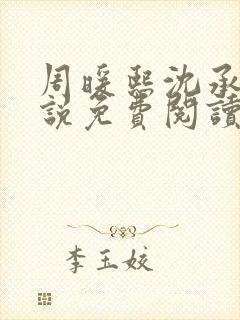 周暖熙沈承
說免費閱讀
李玉姣